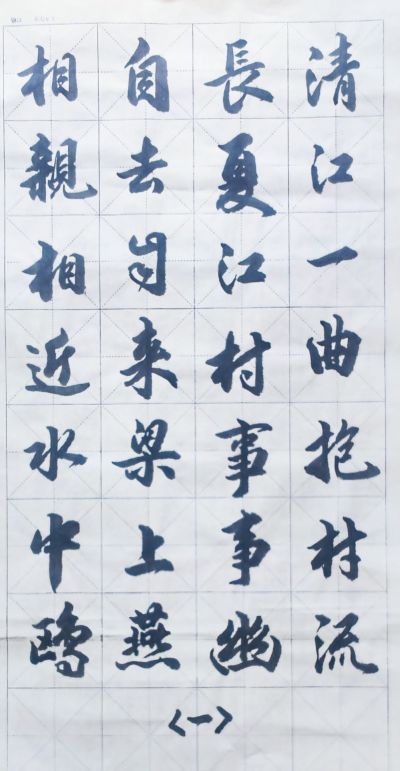 清江一曲抱村流
長夏江村事事幽
自去自来梁上燕
相親相近水中鷗
<一>